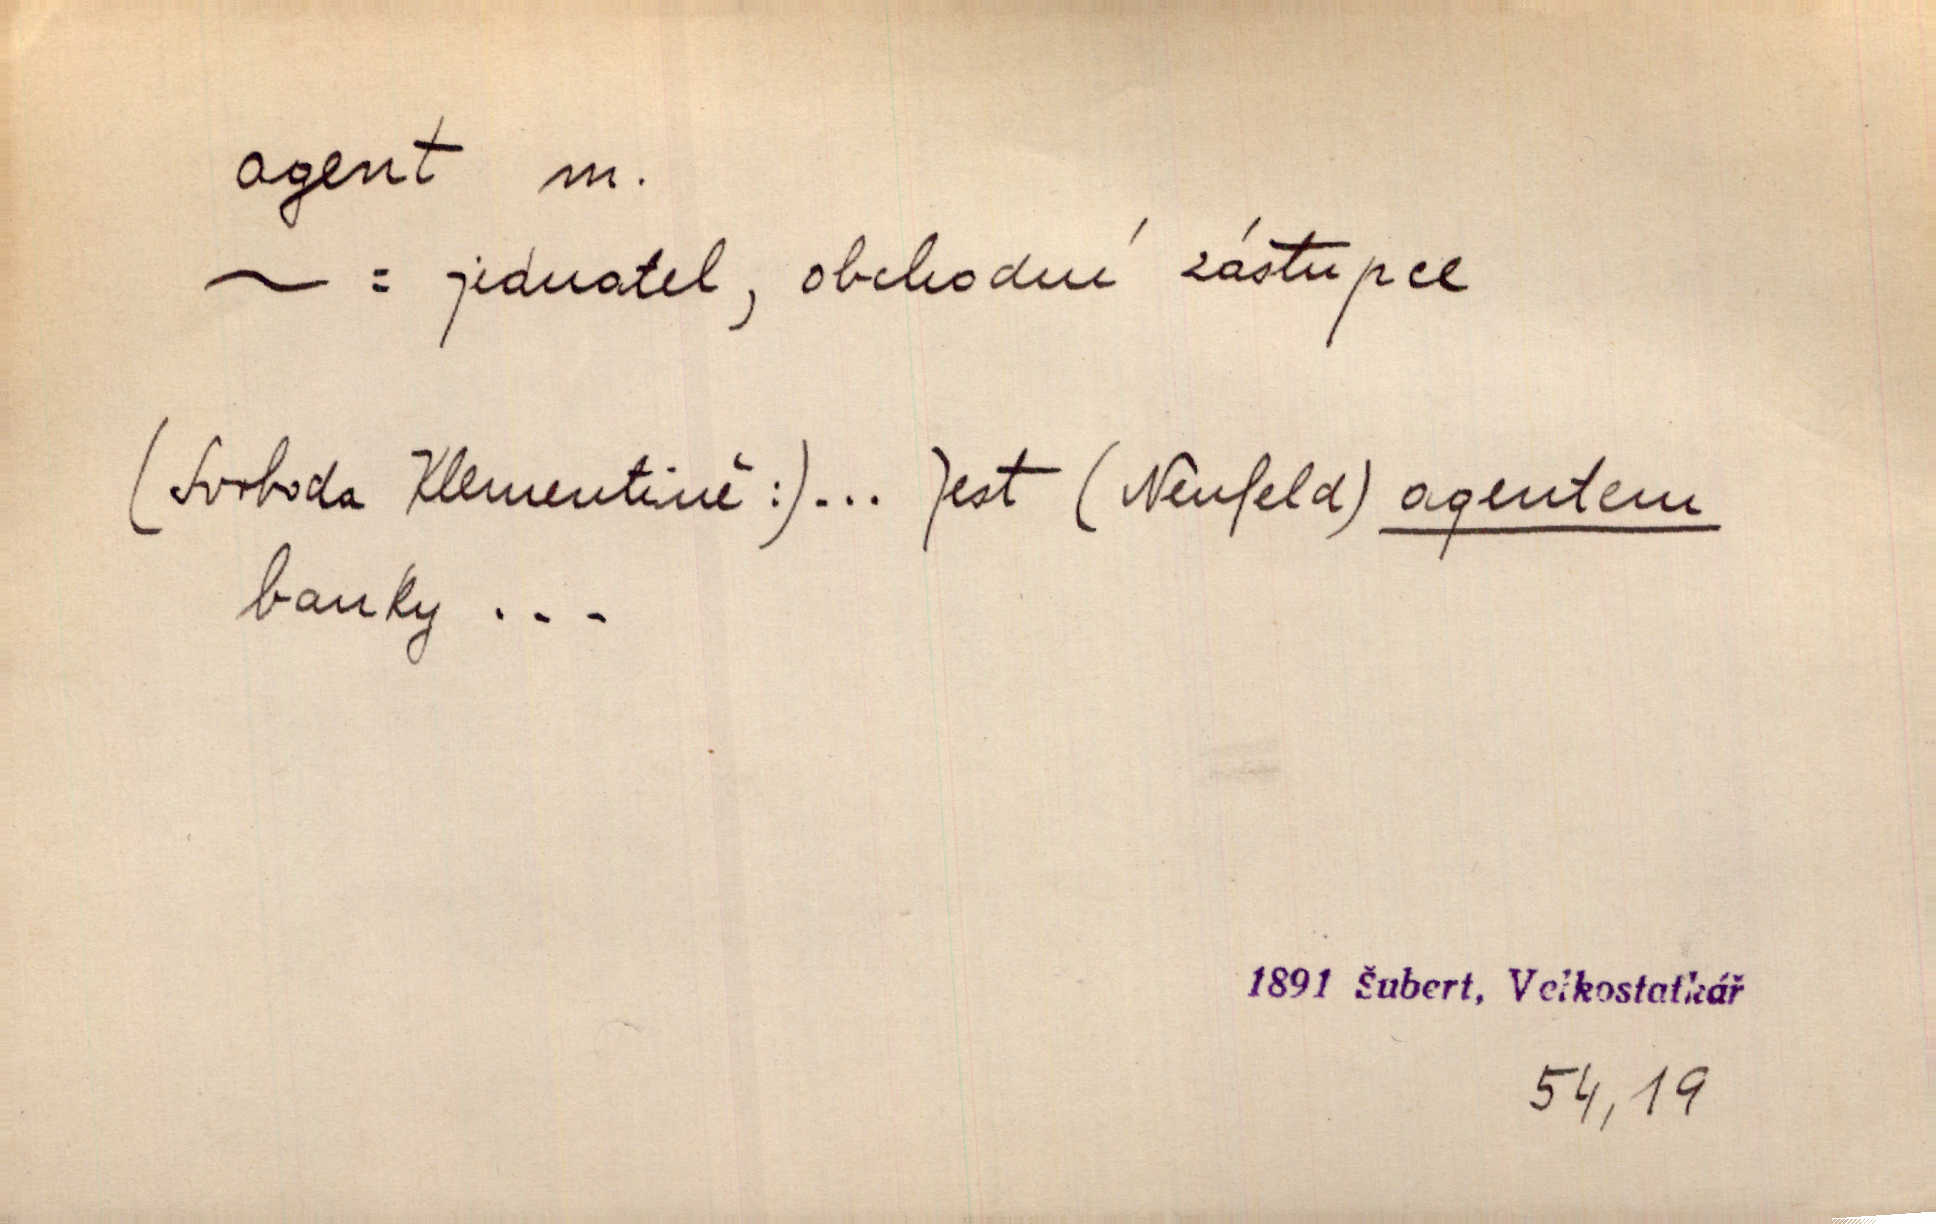 agent m.
~ = jednatel, obchodní zástupce
(Svoboda Klementině:)... Jest (Neufeld) agentem
banky ...
1891 Šubert, Velkostatkář
54,19